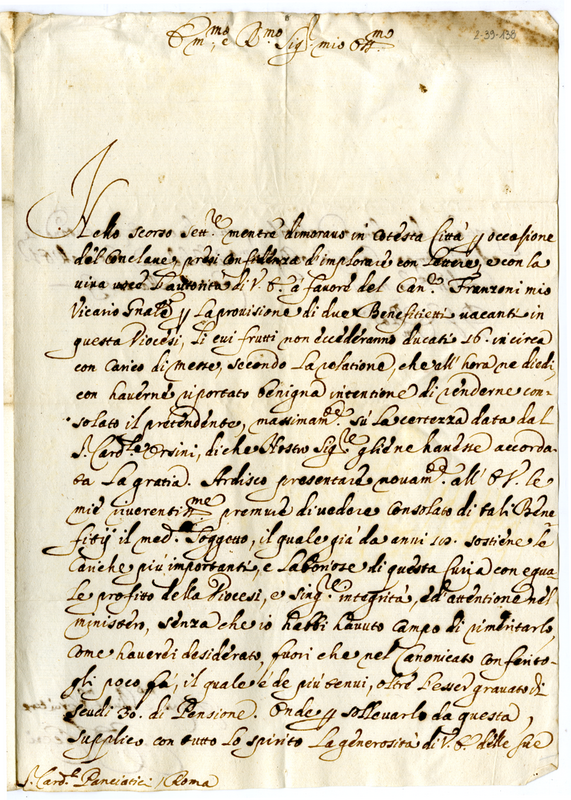 2-39-138
Em.mo e R.mo Sig.r mio Oss.mo
Nello scorso Sett.re mentre dimoravo in cotesta Città p occasione
del Conclave, presi confidenza d'implorare con lettere, e con la
viva voce l'autorità di V. E. a favore del Can.co Franzoni mio
Vicario Gnãle p la provisione di due Benefitietti vacanti in
questa Diocesi, li cui frutti non eccederanno ducati 16. in circa
con Carico di Messe, secondo la relatione, che all'hora ne diedi,
con haverne riportato benigna intentione di renderne con-
solato il pretendente, massimam.te su la certezza data dal
S. Card.le Orsini, di che Nostro Sig.re gliene havesse accorda-
ta la gratia. Ardisco presentare novam.te all' E. V. le
mie riverentis.me premure di vedere consolato di tali Bene
fitij il med.o Soggetto, il quale già da anni 10. sostiene le
Cariche più importanti, e laboriose di questa Curia con egua
le profitto della Diocesi, e sing.re integrità, ed attentione nel
ministero, senza che io habbi havuto campo di rimeritarlo,
come haverei desiderato, fuori che nel Canonicato conferito-
gli poco fa, il quale è de più tenui, oltre l'esser gravato di
scudi 30. di Pensione. Onde p sollevarlo da questa,
supplico con tutto lo spirito la generosità di V. E. delle sue
S. Card.le Panciatici / Roma